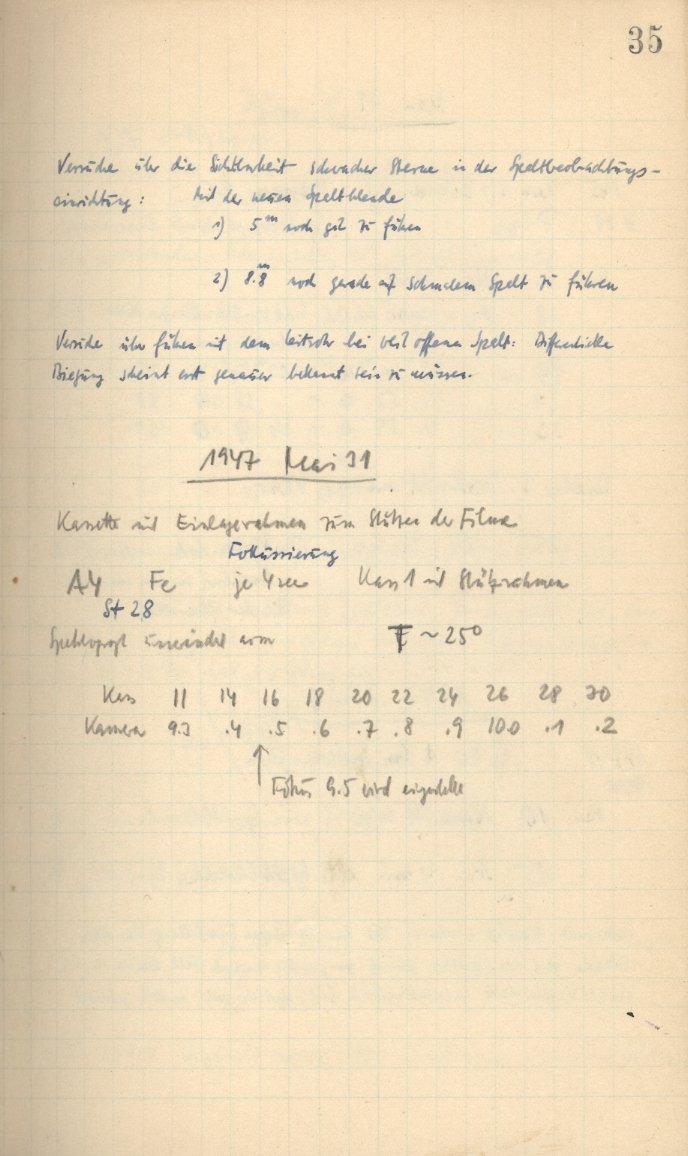 35
Versuche über die Sichtbarkeit schwacher Sterne in der Spaltbeobachtungs-
einrichtung: Mit der neuen Spaltblende
1) 5 m noch gut zu führen
2) 8.8 m noch gerade auf schmalem Spalt zu führen
Versuche über führen mit dem Leitrohr bei weit offenem Spalt: Differentielle
Biegung scheint erst genauer bekannt sein zu müssen.
1947 Mai 31
Kassette mit Einlagerahmen zum Stützen der Filme
Fokussierung
A4 Fe je 4 sec Kass 1 mit Stützrahmen
St 28
T ~ 25°
Kass 11 14 16 18 20 22 24 26 28 30
Kamera 9.3 .4 .5 .6 .7 .8 .9 10.0 .1 .2
↑ Fokus 9.5 wird eingestellt